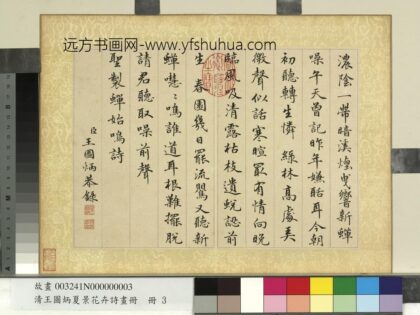 远方书画网-www.yfshuhua.com
濃陰一帶暗溪㶑曳響新蟬
噪午天曾記昨年嫌聒耳今朝
初聽轉生憐 綠林高處奏
徽聲似話寒暄最有情向晚
臨風及清露枯枝遺蛻認前
生 春園幾日罷流鶯又聽新
蟬嘒嘒鳴誰道耳根難擺脫
請君聽取噪前聲
聖製蟬始鳴詩
臣王國炳恭錄
故畫 003241N000000003
清王國炳夏景花卉詩畫冊 冊 3